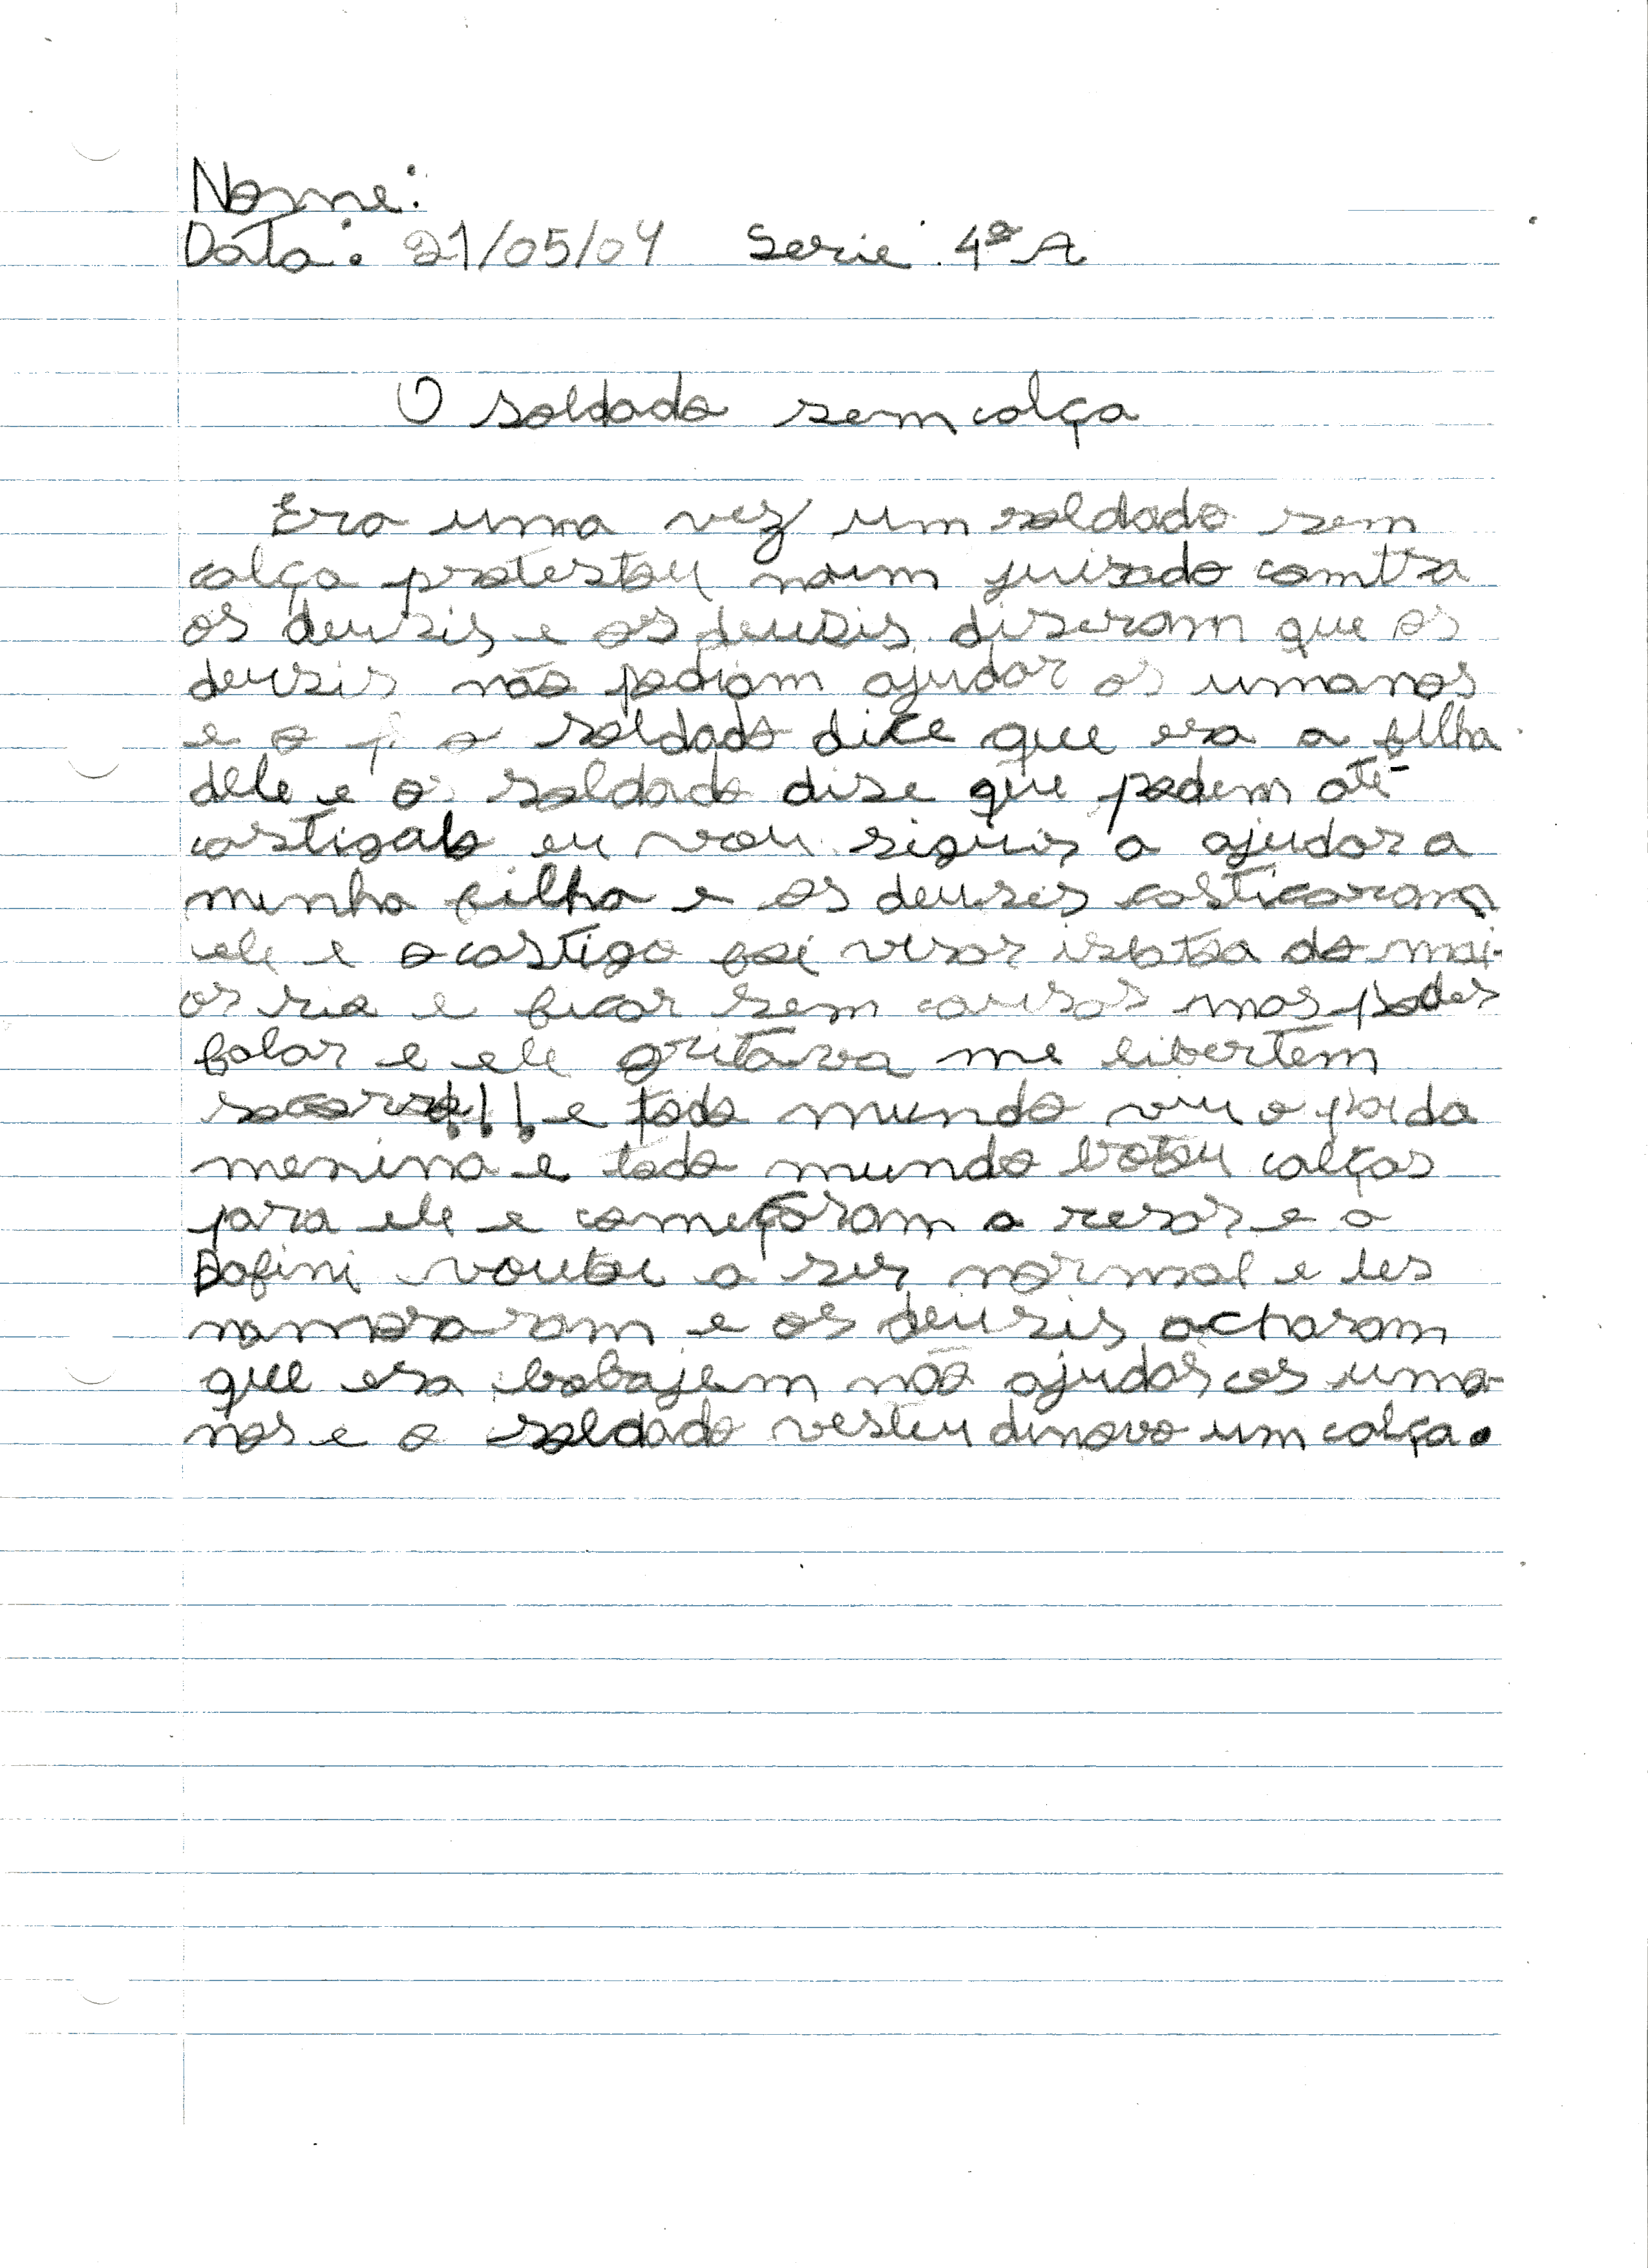 Nome:
Data: 21/05/04 Serie: 4ª A
O soldado sem calça
Era uma vez um soldado sem
calça protestou num juizado contra
os deuzis e os deuzis diseram que os
deuzis não podiam ajudar os umanos
e o p o soldado dice que era a filha
dele e o soldado dise que podem até
castigalo eu vou siguir a ajudar a
minha filha e os deuses casticaram
ele e o castigo foi virar
or ria e ficar sem mas poder
falar e ele gritava me libertem
socorro!!! e todo mundo viu o pai da
menina e todo mundo botou calças
para ele e começaram a rezar e a
Dafini voutou a ser normal e les
namoraram e os deuzis acharam
que era bobajem não ajudar os uma-
nos e o soldado vestiu dinovo um calça.